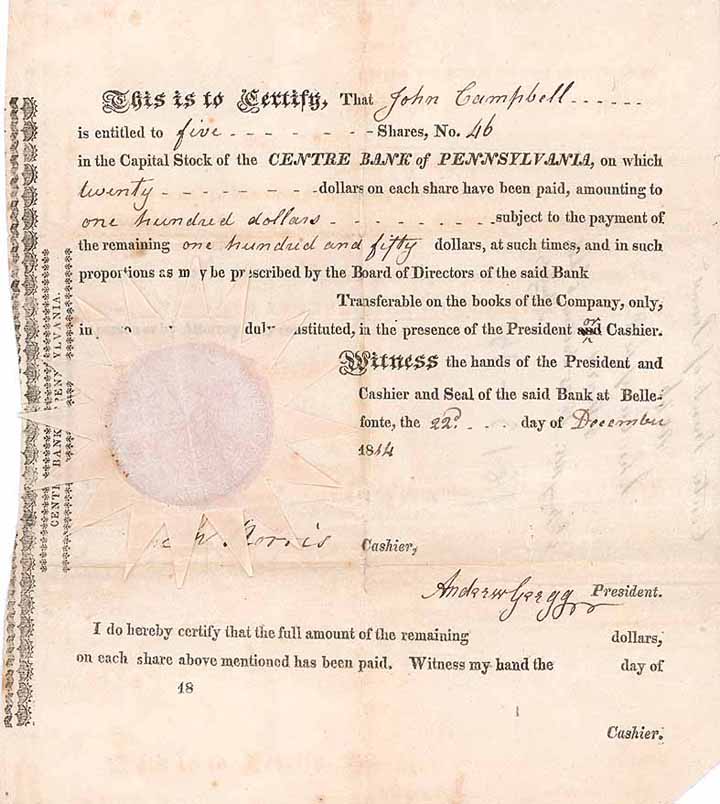 This is to Certify, That John Campbell
is entitled to five Shares, No. 46
in the Capital Stock of the CENTRE BANK of PENNSYLVANIA, on which
twenty dollars on each share have been paid, amounting to
one hundred dollars subject to the payment of
the remaining one hundred and fifty dollars, at such times, and in such
proportions as may be prescribed by the Board of Directors of the said Bank
Transferable on the books of the Company, only,
in by Attorney duly constituted, in the presence of the President and or Cashier.
Witness the hands of the President and
Cashier and Seal of the said Bank at Belle-
fonte, the 22d. day of December
1814
Norris Cashier,
Andrew Gregg President.
I do hereby certify that the full amount of the remaining dollars,
on each share above mentioned has been paid. Witness my hand the day of
18
Cashier.
CENTRE BANK PENNSYLVANIA